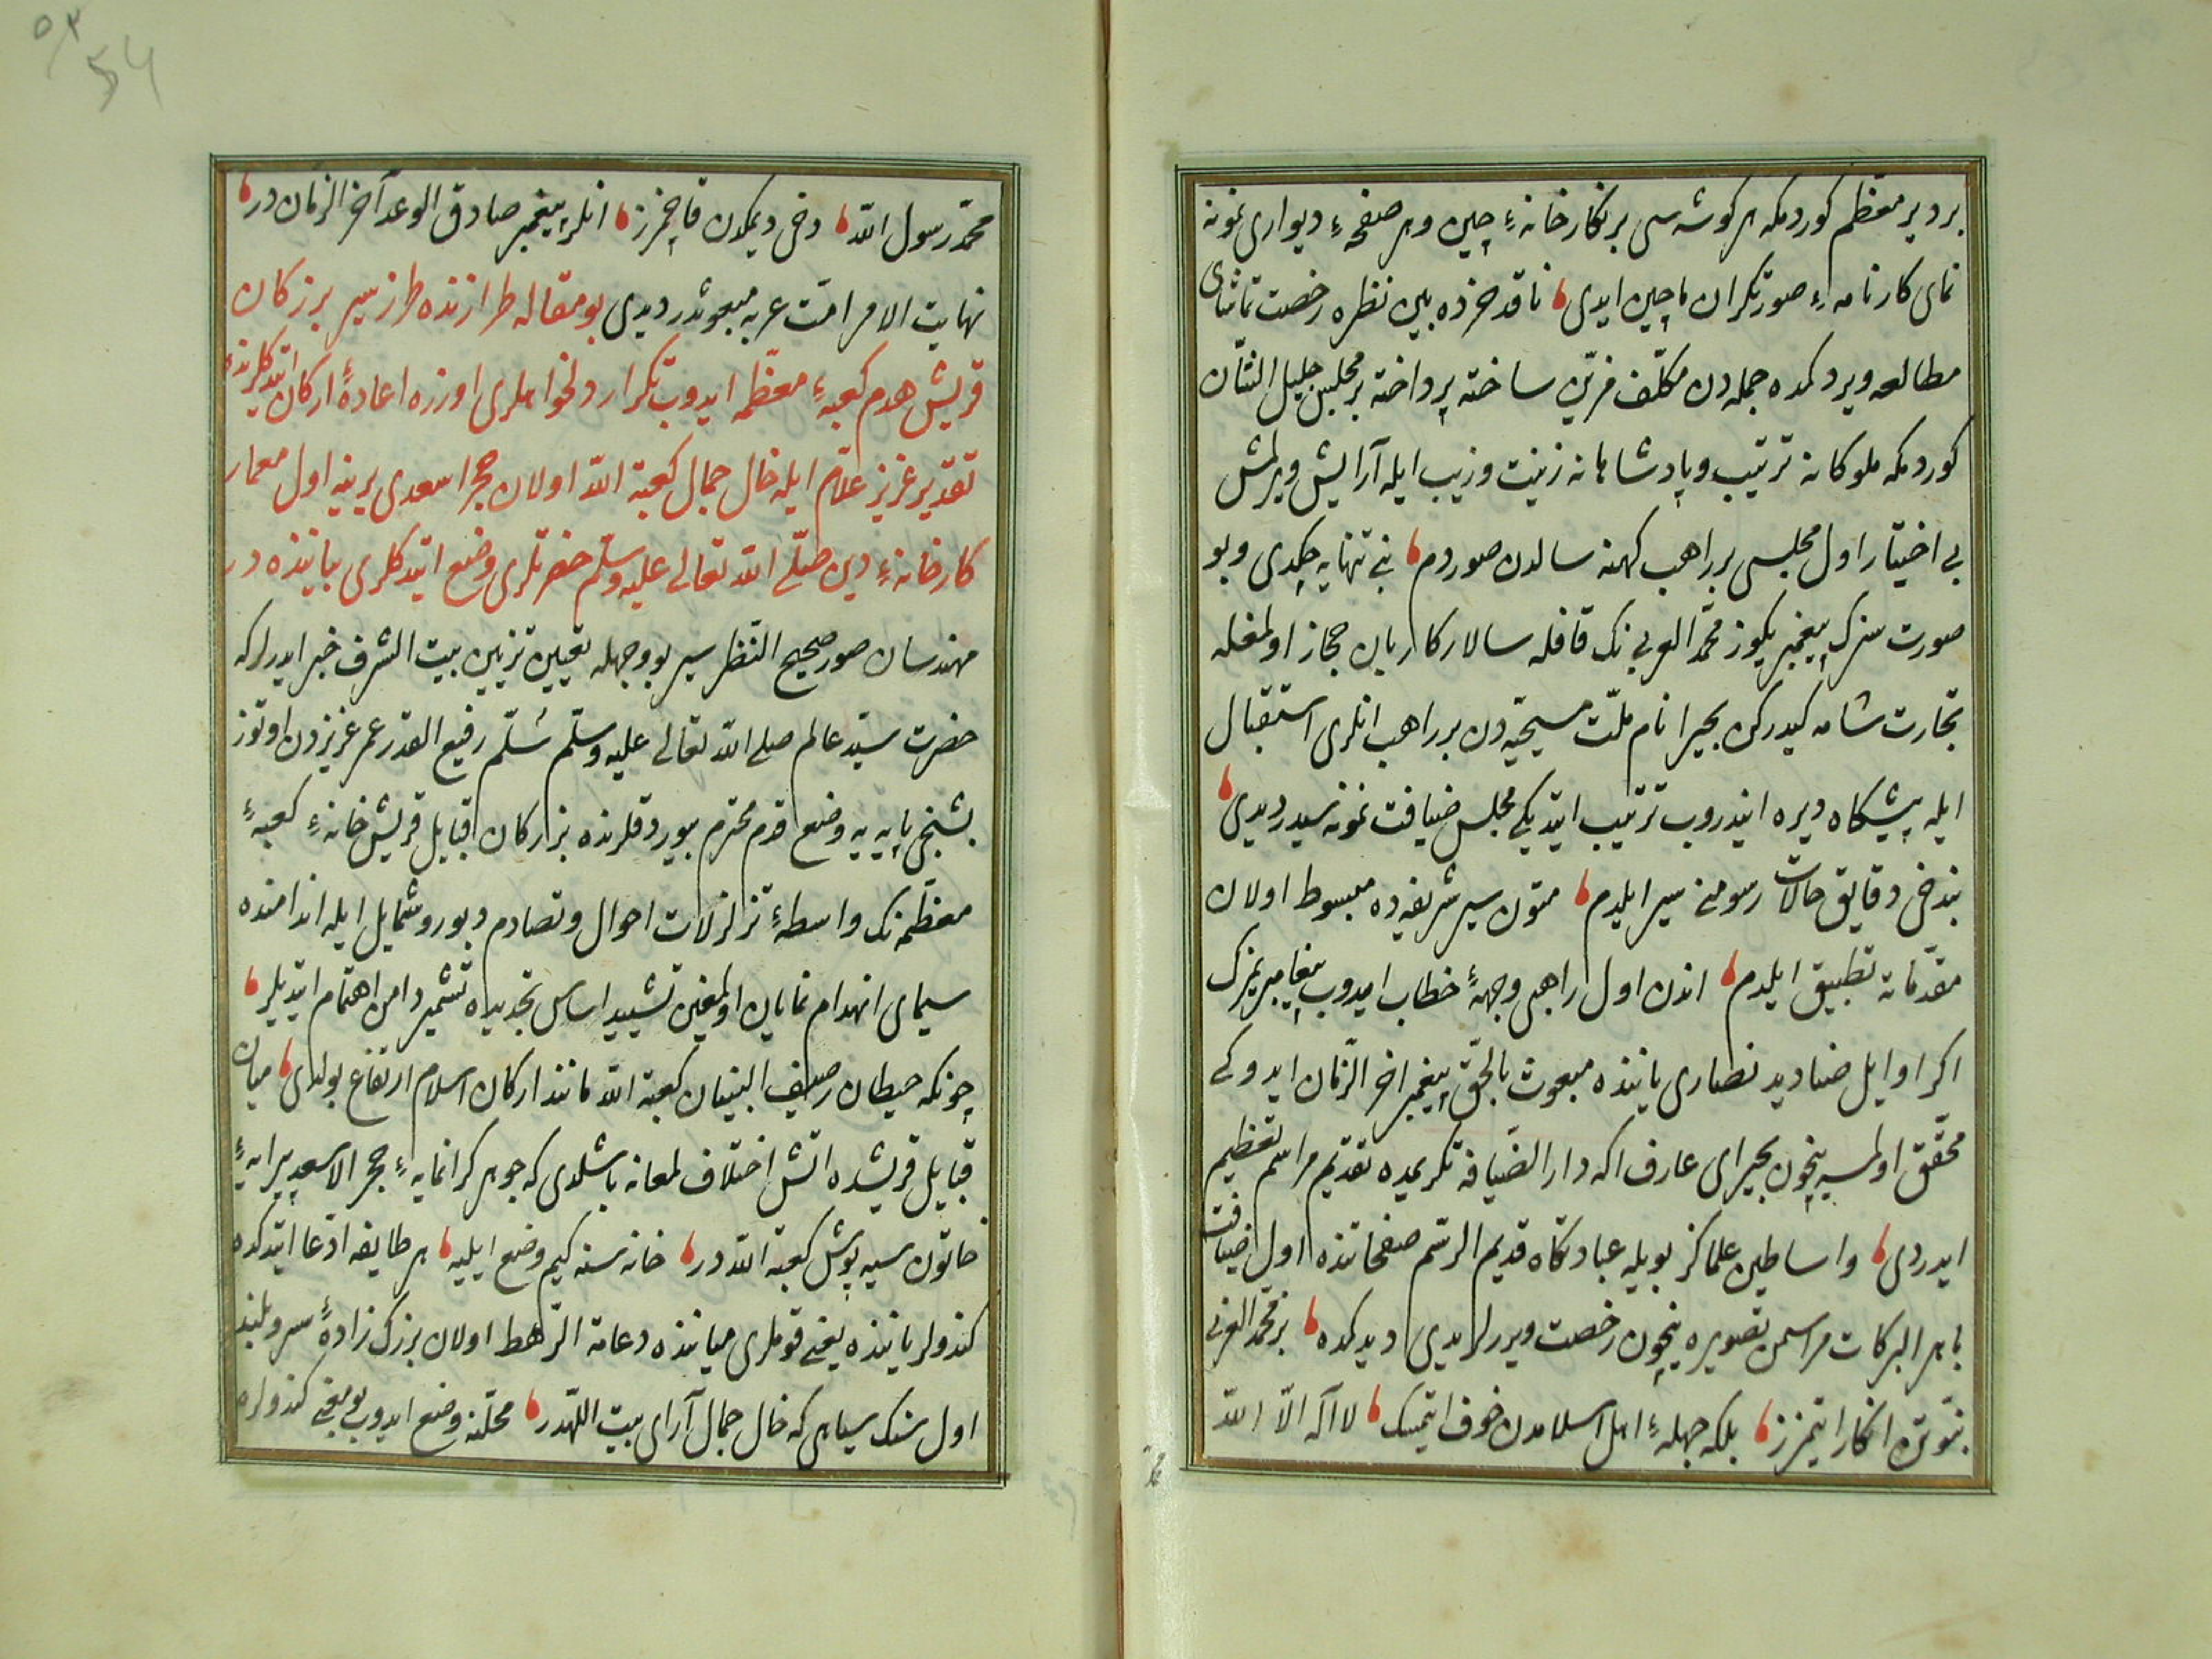 بر دیر معظم کوردمکه هر کوشه سی بر نکارخانهٔ چین و هر صفحهٔ دیواری نمونه
نمای کارنامهٔ صورتکران ماچین ایدی ناقد خرده بین نظره رخصت تماشای
مطالعه ویردکمده جمله دن مکلّف مزیّن ساخته پرداخته بر مجلس جلیل الشّان
کوردمکه ملوکانه ترتیب و پادشاهانه زینت و زیب ایله آرایش ویرلمش
بی اختیار اول مجلسی بر راهب کهنه سالدن صوردم بنی تنهایه چکدی و بو
صورت سزک پیغمبریکوز محمّد العربی نک قافله سالار کاربان حجاز اولمغله
تجارت شامه کیدرکن بحیرا نام ملّت مسیحیّه دن بر راهب انلری استقبال
ایله پیشکاه دیره ایندروب ترتیب ایتدیکی مجلس ضیافت نمونه سیدر دیدی
بندخی دقایق حالات رسومنی سیر ایلدم متون سیر شریفه ده مبسوط اولان
مقدّماته تطبیق ایلدم اندن اول راهبی وجههٔ خطاب ایدوب پیغامبریمزک
اکر اوایل صنادید نصاری یاننده مبعوث بالحقّ پیغمبر اخر الزّمان ایدوکی
محقّق اولمسیه نیچون بحیرای عارف اکه دار الضّیافه تکریمده تقدیم مراسم تعظیم
ایدردی و اساطین علماکز بویله عبادتکاه قدیم الرّسم صفحاتنده اول ضیافت
باهر البرکات مراسمن تصویره نیچون رخصت ویررلردی دیدکمده بز محمّد العربی
نبوّتن انکار ایتمزز بلکه جهلهٔ اهل اسلامدن خوف ایتمسک لا اله الاّ اللّه
محمّد رسول اللّه دخی دیمکدن قاچمزز انلر پیغمبر صادق الوعد آخر الزمان در
نهایت الامر امّت عربه مبعوثدر دیدی بو مقاله طرازنده طرز سیر برزکان
قریش هدم کعبهٔ معظّمه ایدوب تکرار دلخواهلری اوزره اعادهٔ ارکان ایتدکلرنده
تقدیر عزیز علّام ایله خال جمال کعبة اللّه اولان حجر اسعدی یرینه اول معمار
کارخانهٔ دین صلّی اللّه تعالی علیه وسلّم حضرتلری وضع ایتدکلری بیاننده در
مهندسان صور صحیح النّظر سیر بو وجهله تعیین تزیین بیت الشّرف خبر ایدرلرکه
حضرت سیّد عالم صلی اللّه تعالی علیه وسلّم سُلّم رفیع القدر عمر عزیزدن اوتوز
بشنجی پایه یه وضع قدم محترم بیوردقلرنده بزارکان قبایل قریش خانهٔ کعبهٔ
معظّمه نک واسطهٔ تزلزلات احوال و تصادم دبور و شمایل ایله اندامنده
سیمای انهدام نمایان اولمغین تشیید اساس تجدیده تشمیر دامن اهتمام ایتدیلر
چونکه حیطان رصیف البنیان کعبة اللّه مانند ارکان اسلام ارتفاع بولدی میان
قبایل قریشده اتش اختلاف لمعانه باشلدی که جوهر کرانمایهٔ حجر الاسعد پیرایهٔ
خاتون سیه پوش کعبة اللّه در خانه سنه کیم وضع ایلیه هر طایفه ادّعا ایتدکده
کندولر یاننده یعنی قوملری میاننده دعامة الرّهط اولان بزرک زادهٔ سربلند
اول سنک سیاهی که خال جمال آرای بیت اللّهدر محلّنه وضع ایدوب بو معنی کندولره
محمّد